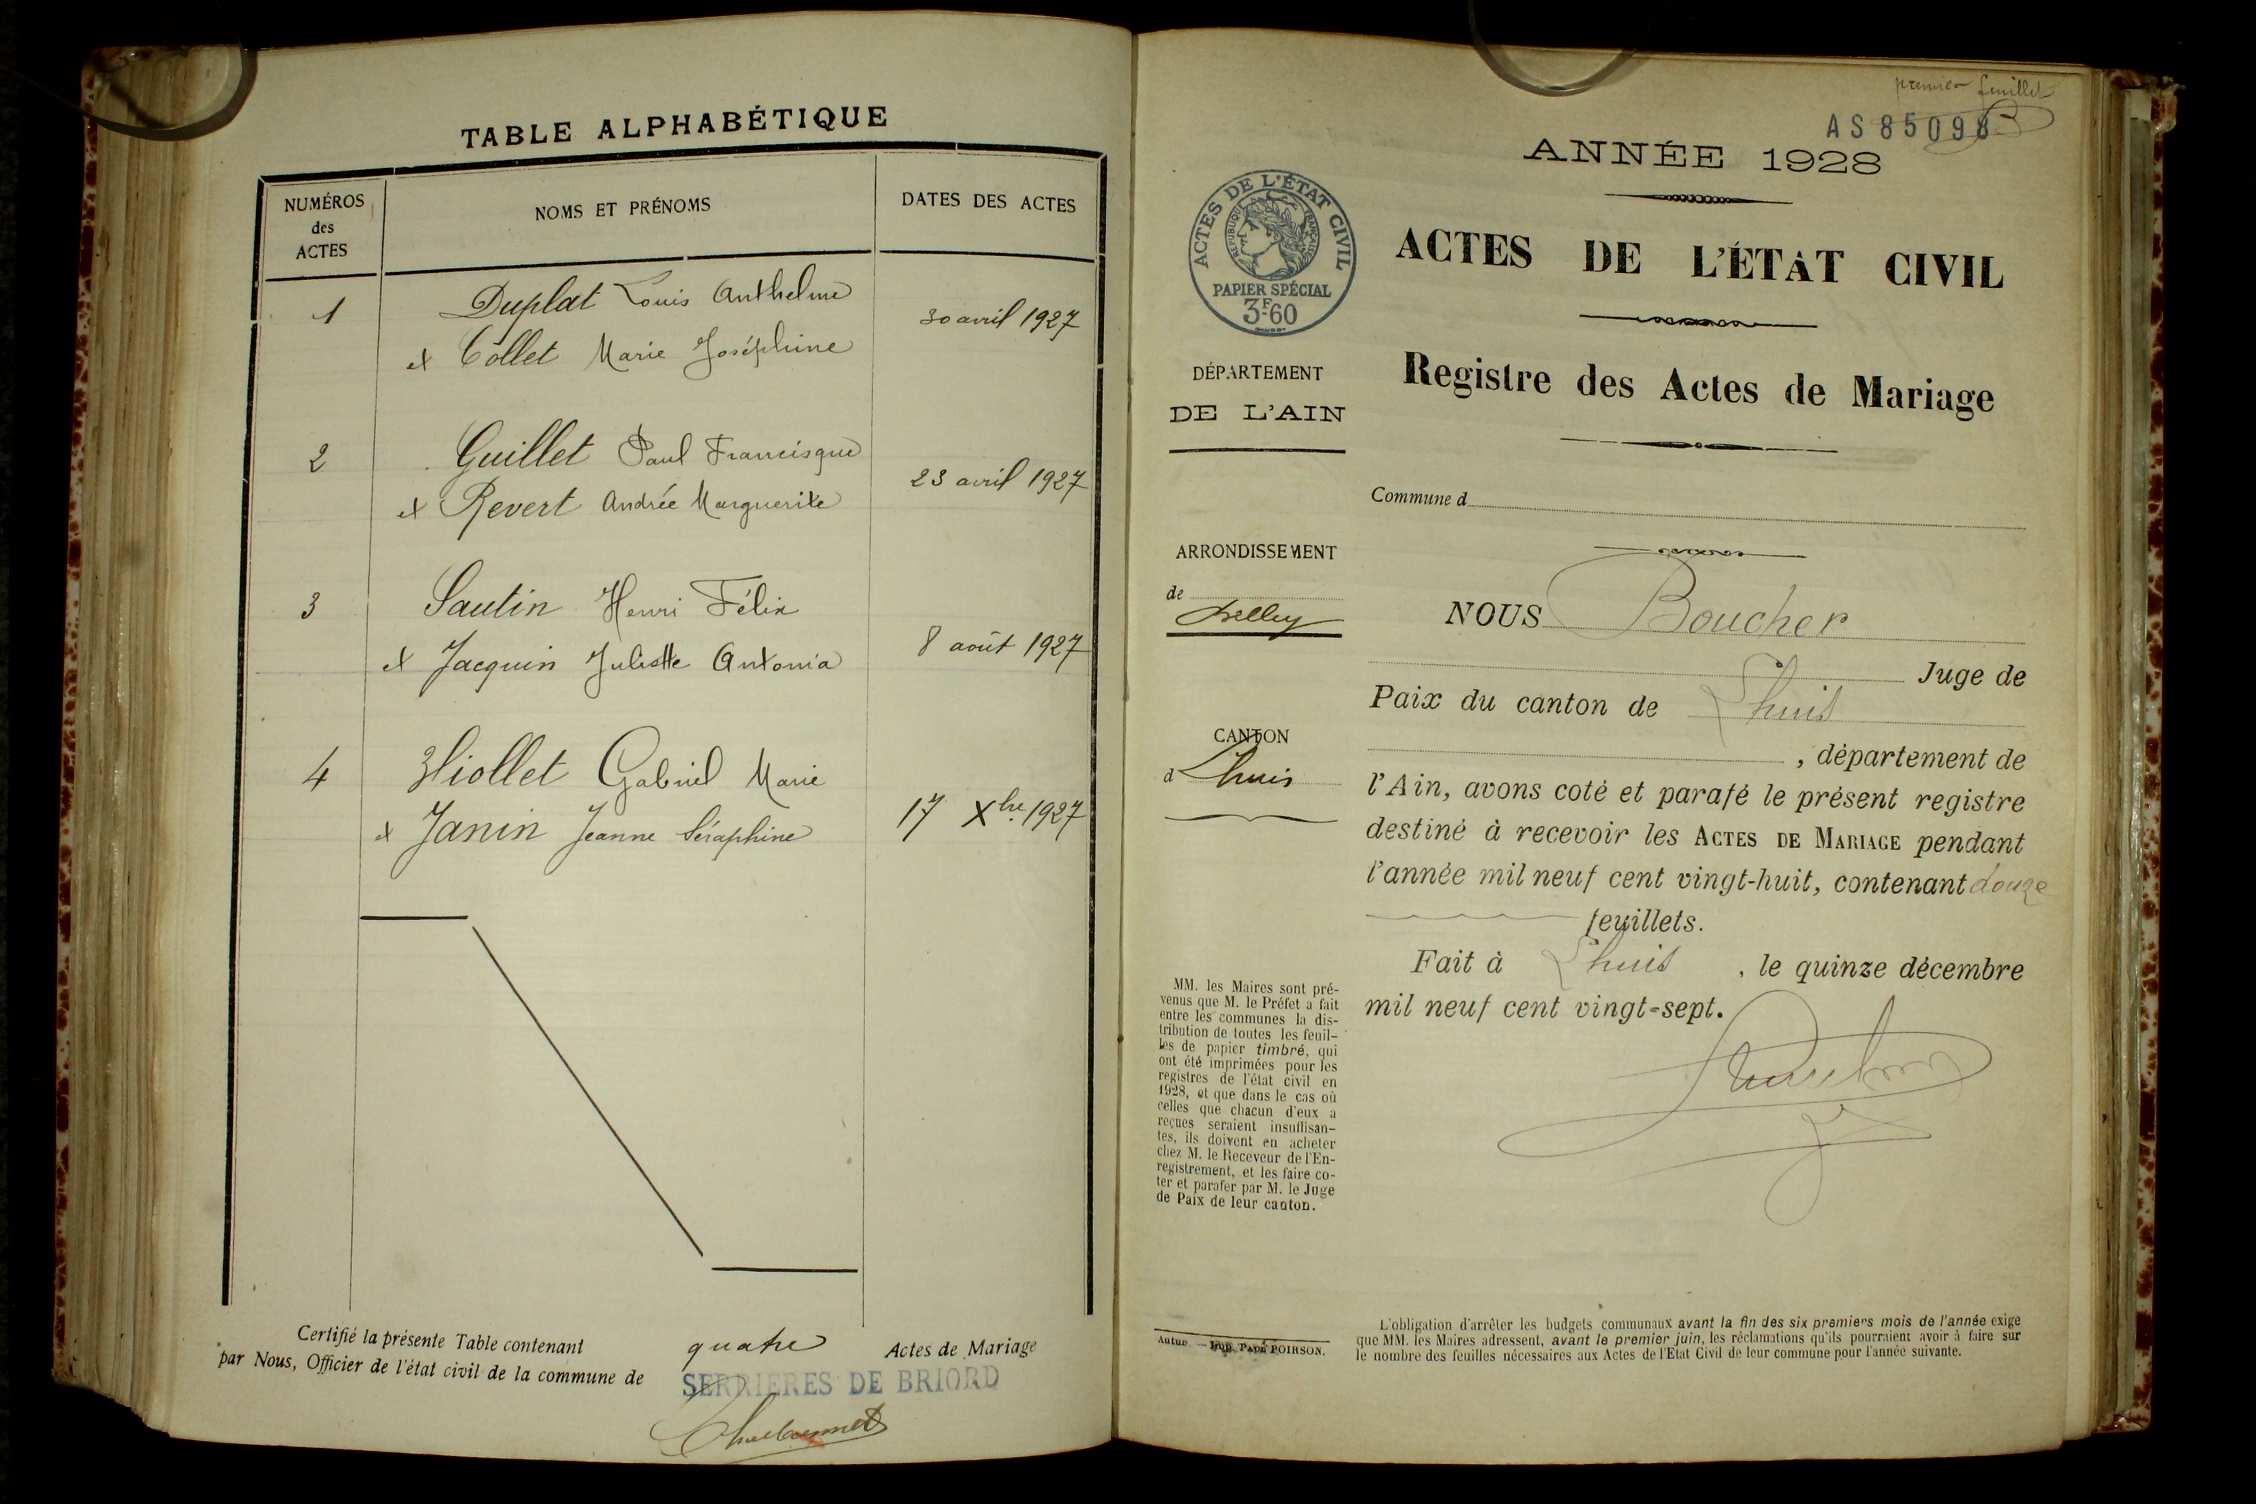 TABLE ALPHABÉTIQUE
NUMÉROS
des
ACTES
NOMS ET PRÉNOMS
DATES DES ACTES
1
Duplat Louis Anthelme
et Collet Marie Joséphine
30 avril 1927
2
Guillet Paul Francisque
et Revert Andrée Marguerite
23 avril 1927
3
Sautin Henri Félix
et Jacquin Juliette Antonia
8 août 1927
4
Gabriel Marie
et Janin Jeanne Séraphine
17 Xbre 1927
Certifié la présente Table contenant quatre Actes de Mariage
par Nous, Officier de l'état civil de la commune de SERRIERES DE BRIORD
premier feuillet
AS 85098
ANNÉE 1928
ACTES DE L'ÉTAT CIVIL
RÉPUBLIQUE FRANÇAISE
PAPIER SPÉCIAL
3F.60
ACTES DE L'ÉTAT CIVIL
Registre des Actes de Mariage
DÉPARTEMENT
DE L'AIN
Commune d
ARRONDISSEMENT
de
Belley
CANTON
d Lhuis
NOUS Boucher
Juge de
Paix du canton de Lhuis
, département de
l'Ain, avons coté et parafé le présent registre
destiné à recevoir les ACTES DE MARIAGE pendant
l'année mil neuf cent vingt-huit, contenant douze
feuillets.
Fait à Lhuis, le quinze décembre
mil neuf cent vingt-sept.
MM. les Maires sont pré-
venus que M. le Préfet a fait
entre les communes la dis-
tribution de toutes les feuil-
les de papier timbré, qui
ont été imprimées pour les
registres de l'état civil en
1928, et que dans le cas où
celles que chacun d'eux a
reçues seraient insuffisan-
tes, ils doivent en acheter
chez M. le Receveur de l'En-
registrement, et les faire co-
ter et parafer par M. le Juge
de Paix de leur canton.
Autun — Imp. Papé POIRSON.
L'obligation d'arrêter les budgets communaux avant la fin des six premiers mois de l'année exige
que MM. les Maires adressent, avant le premier juin, les réclamations qu'ils pourraient avoir à faire sur
le nombre des feuilles nécessaires aux Actes de l'Etat Civil de leur commune pour l'année suivante.